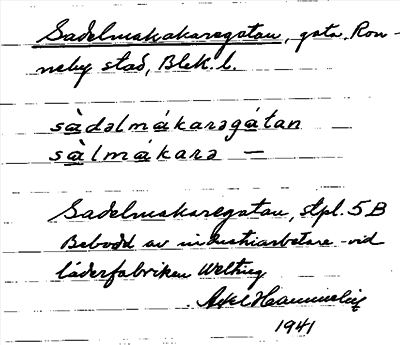 Sadelmakaregatan, gata. Ron-
neby stad, Blek. l.
sàdəlmákarəgátan
sàlmákarə —
Sadelmakaregatan, stpl. 5 B
Bebodd av industriarbetare vid
läderfabriken
Axel
1941